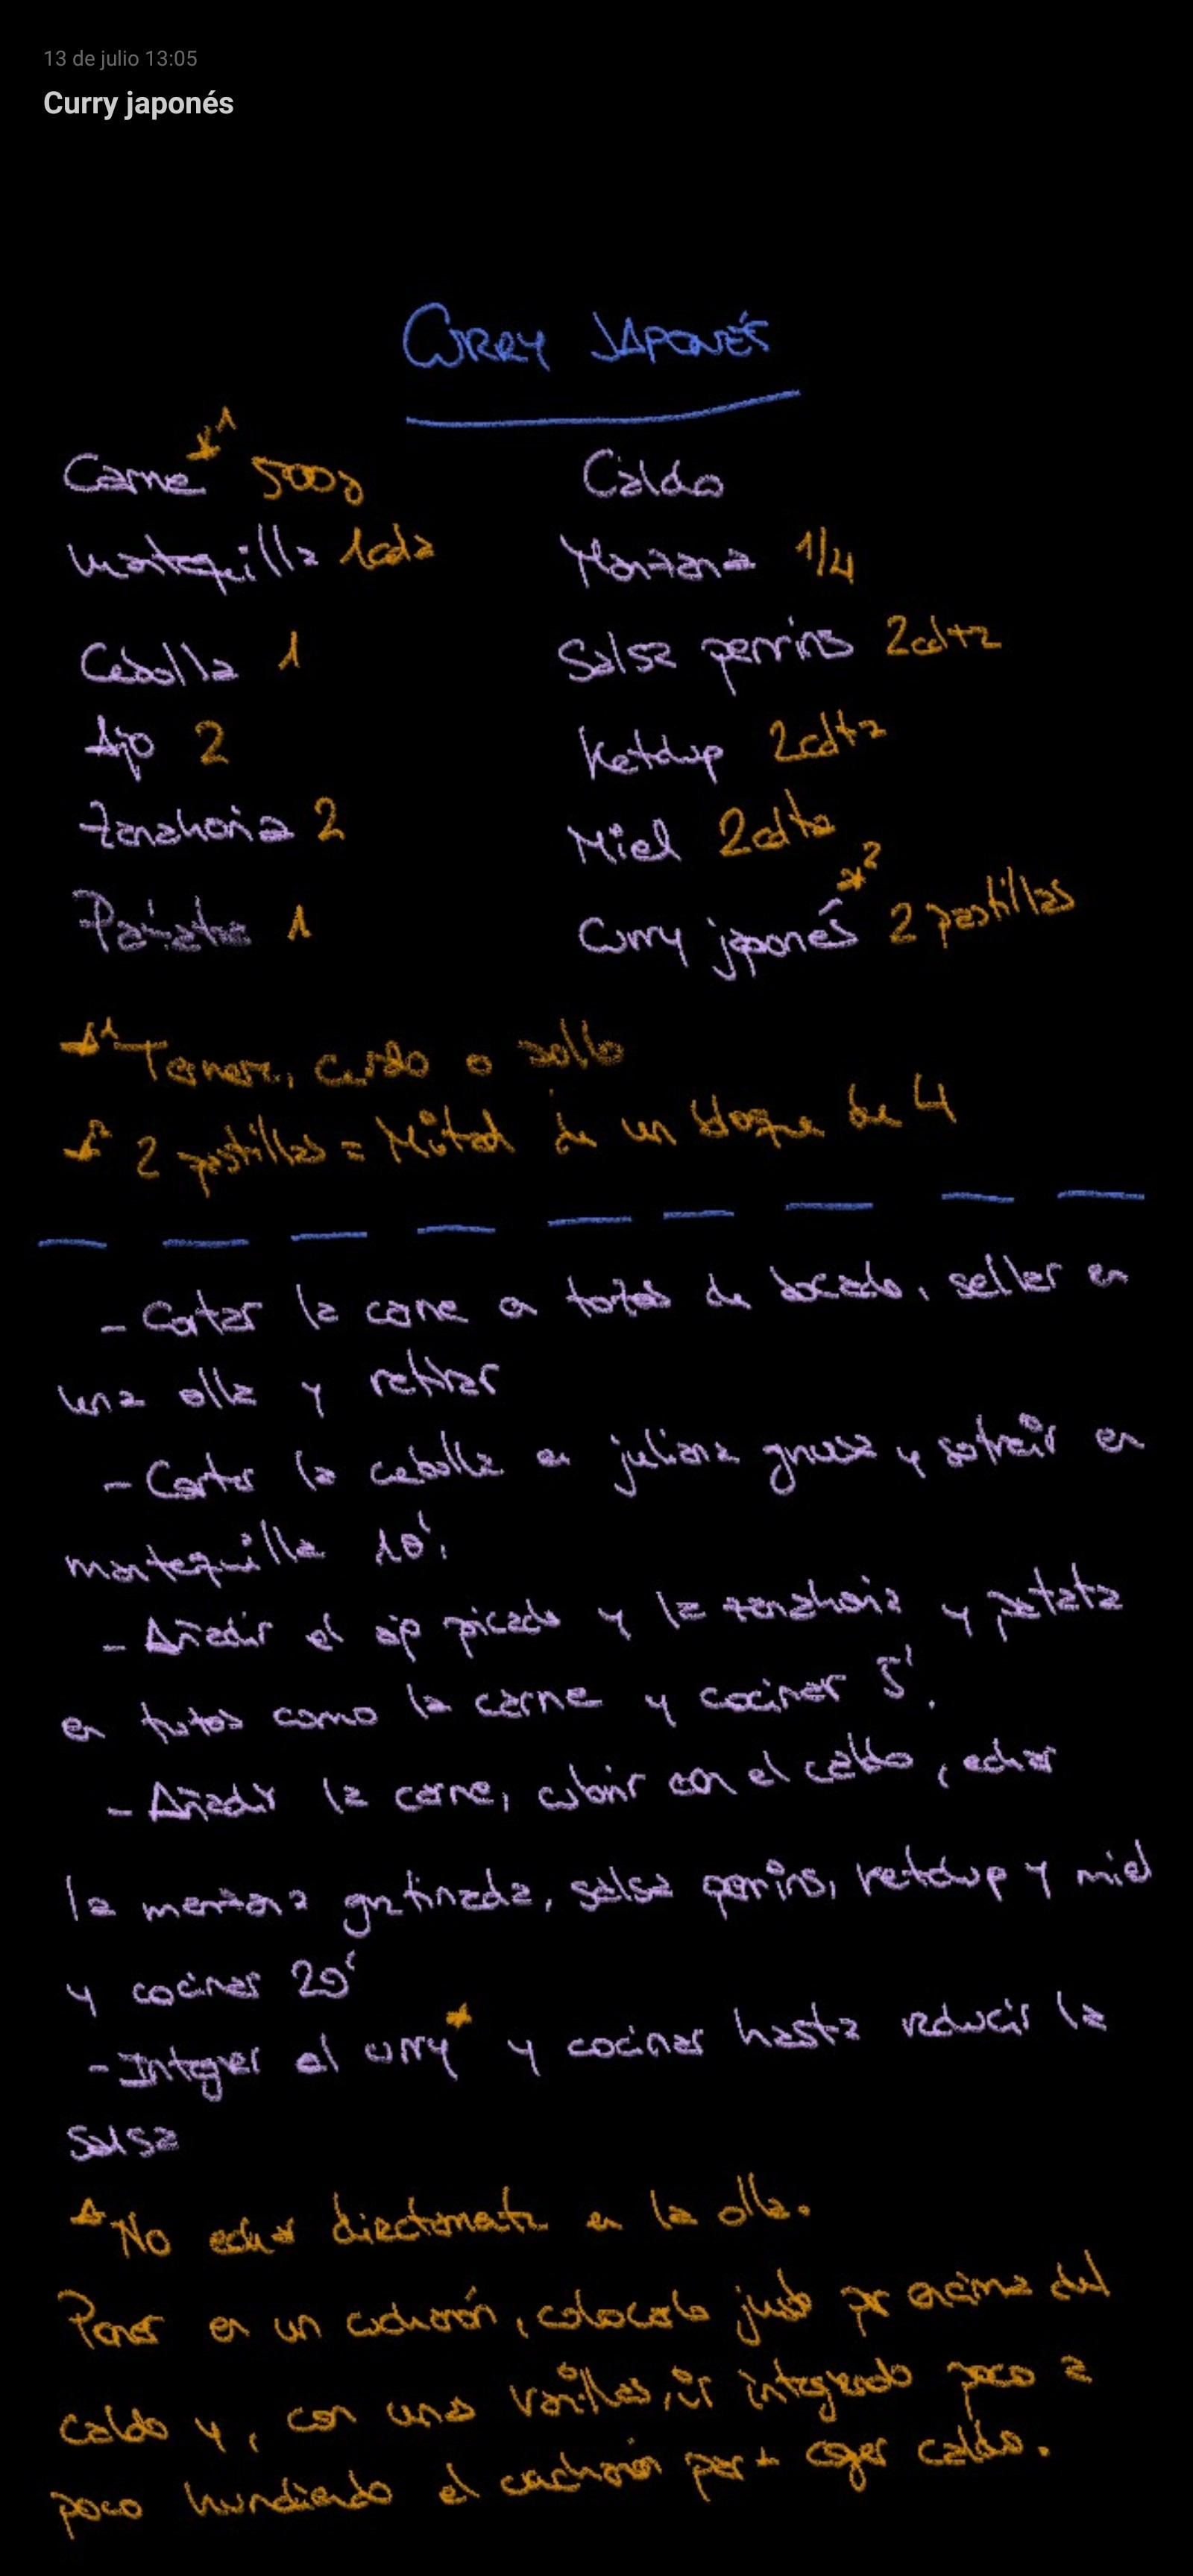 13 de julio 13:05
Curry japonés
CURRY JAPONÉS
Carne *1 500g
Mantequilla 1cda
Cebolla 1
Ajo 2
Zanahoria 2
Patata 1
Caldo
Manzana 1/4
Salsa perrins 2cdta
Ketchup 2cdta
Miel 2cdta
Curry japonés *2 2 pastillas
*1 Ternera, cerdo o pollo
*2 2 pastillas = Mitad de un bloque de 4
- Cortar la carne a trozos de bocado, sellar en
una olla y retirar
- Cortar la cebolla en juliana gruesa y sofreír en
mantequilla 10'.
- Añadir el ajo picado y la zanahoria y patata
en trozos como la carne y cocinar 5'.
- Añadir la carne, cubrir con el caldo, echar
la manzana gratinada, salsa perrins, ketchup y miel
y cocinar 20'
- Integrar el curry* y cocinar hasta reducir la
salsa
* No echar directamente en la olla.
Poner en un cucharón, colocarlo justo por encima del
caldo y, con unas varillas, ir integrando poco a
poco hundiendo el cucharón para coger caldo.